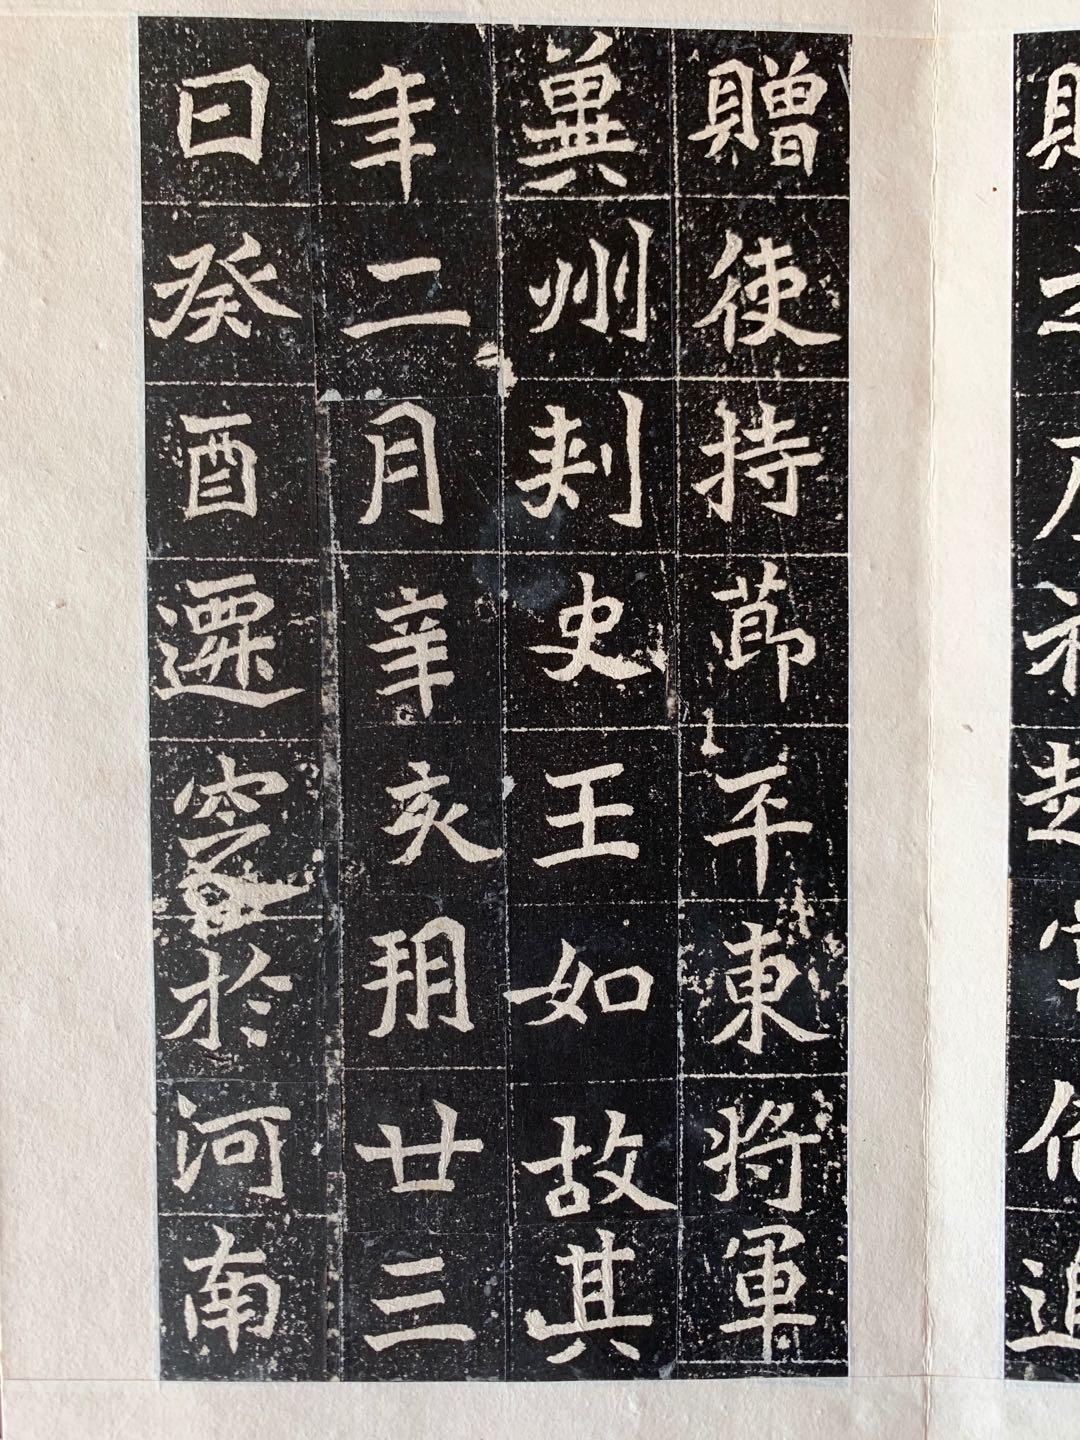 贈使持節平東將軍
冀州刺史王如故其
年二月辛亥朔廿三
日癸酉遷窆於河南